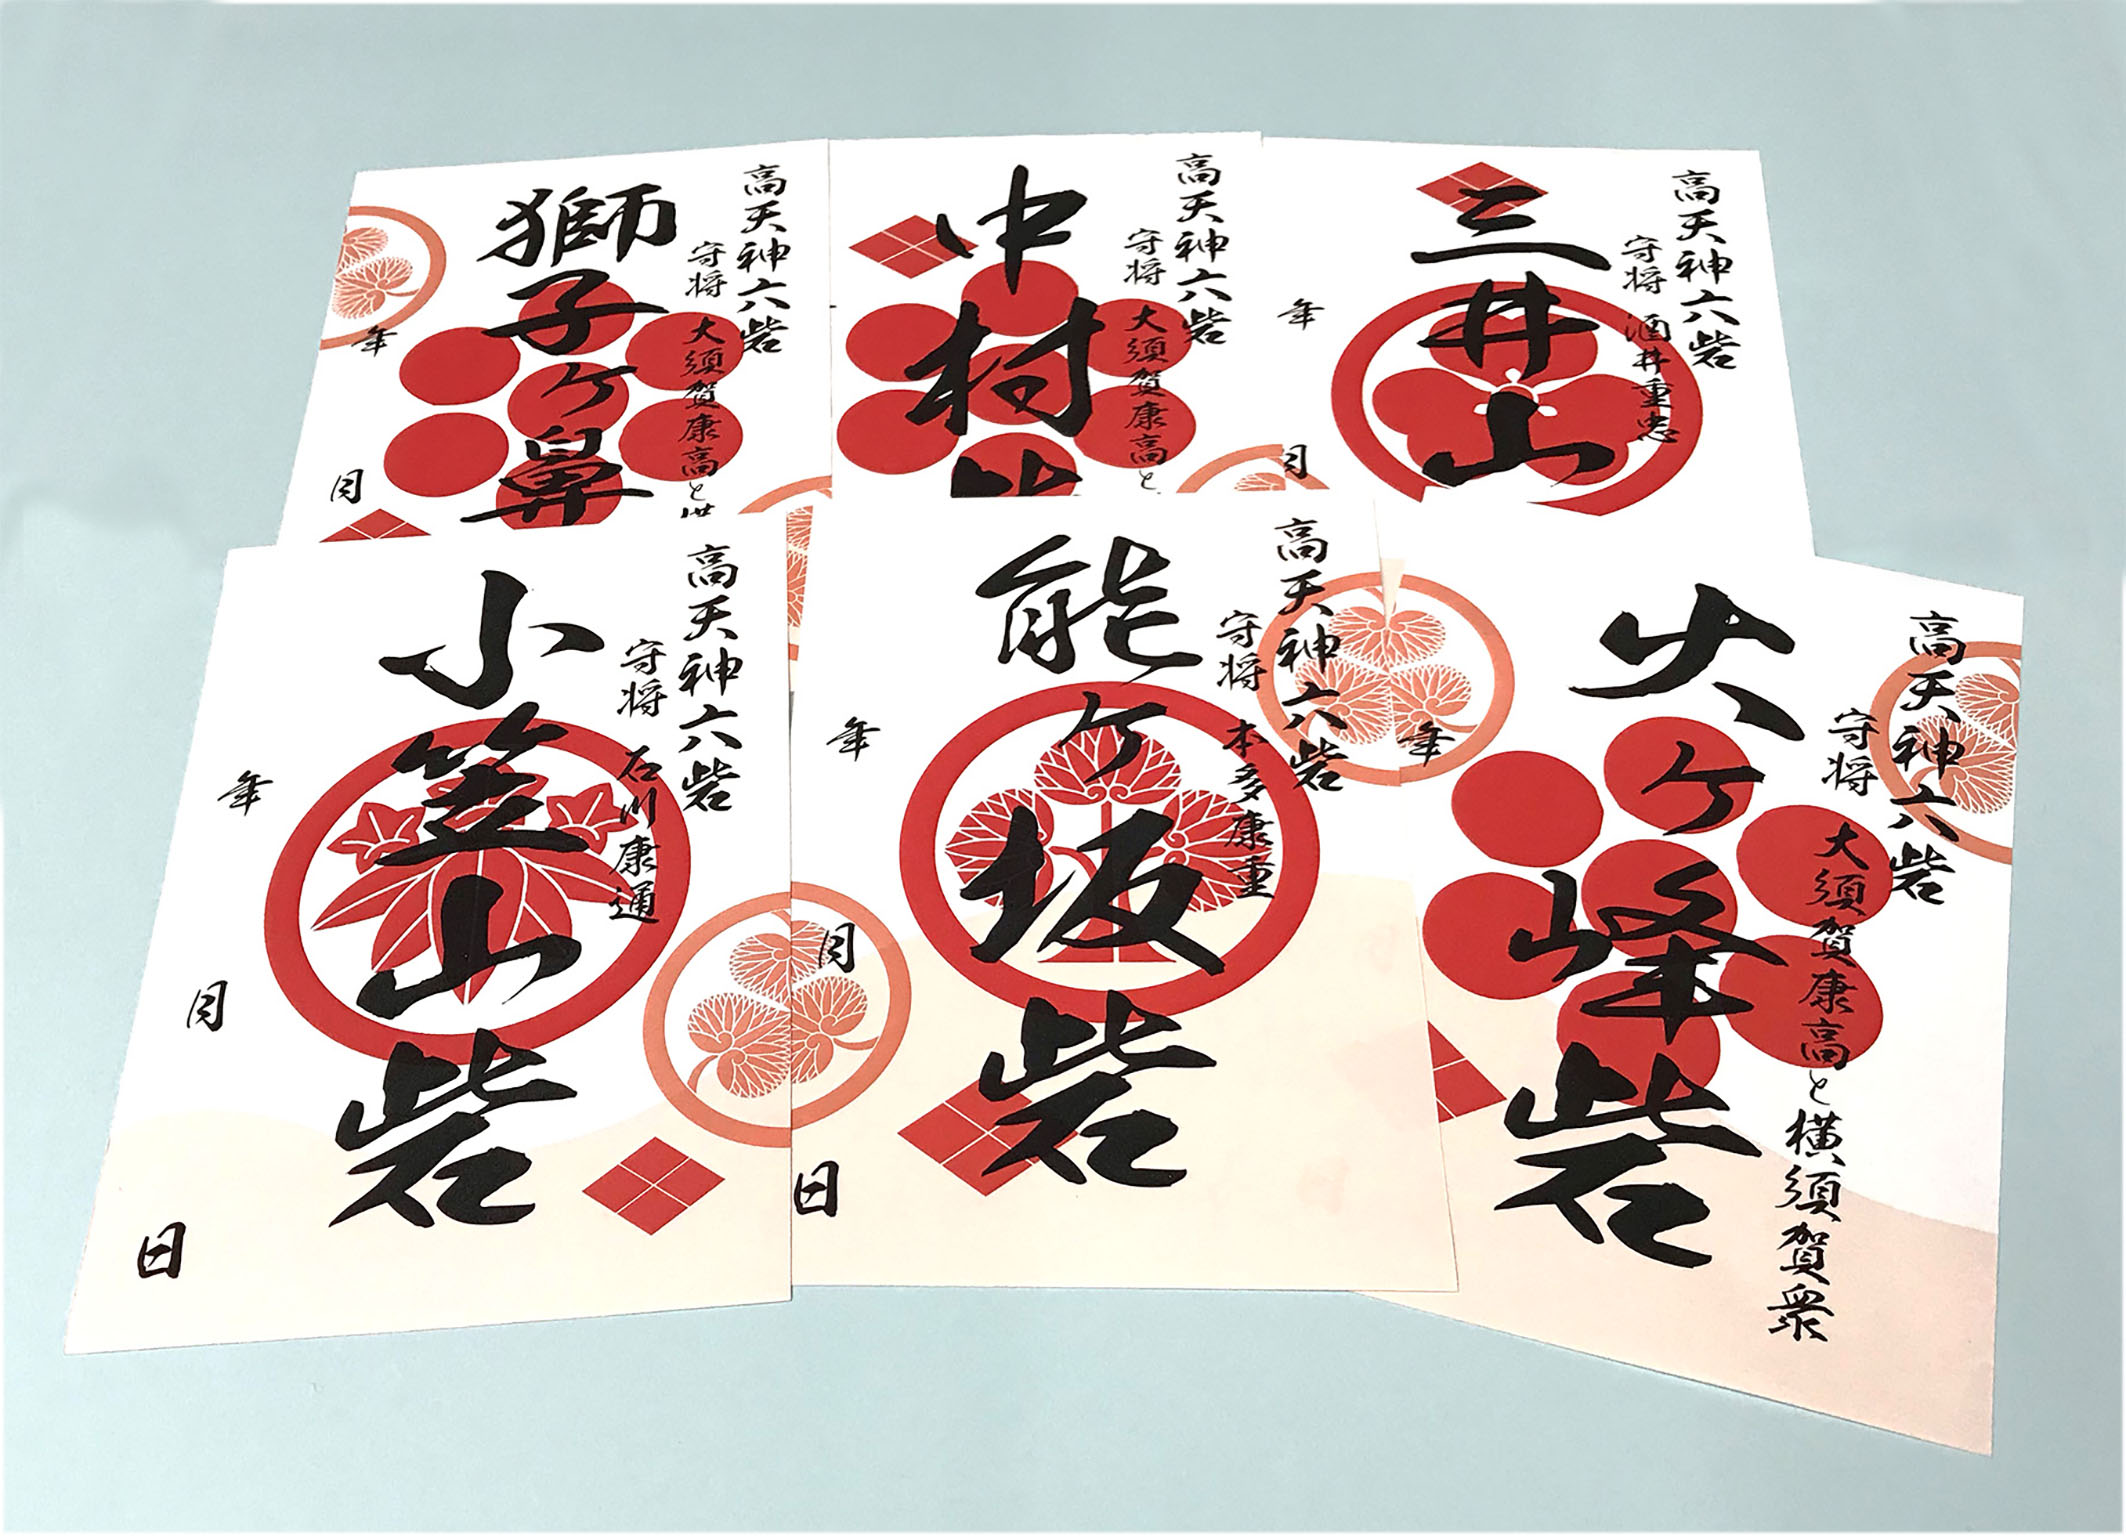 高天神六砦
守将 大須賀康高と
獅子ヶ鼻
年
月
高天神六砦
守将 大須賀康高と
中村
高天神六砦
守将 酒井重忠
三井山
年
月
高天神六砦
守将 石川康通
小笠山砦
年
月
日
高天神六砦
守将 本多康重
能ヶ坂砦
年
月
日
高天神六砦
守将 大須賀康高と横須賀衆
火ヶ峰砦
年